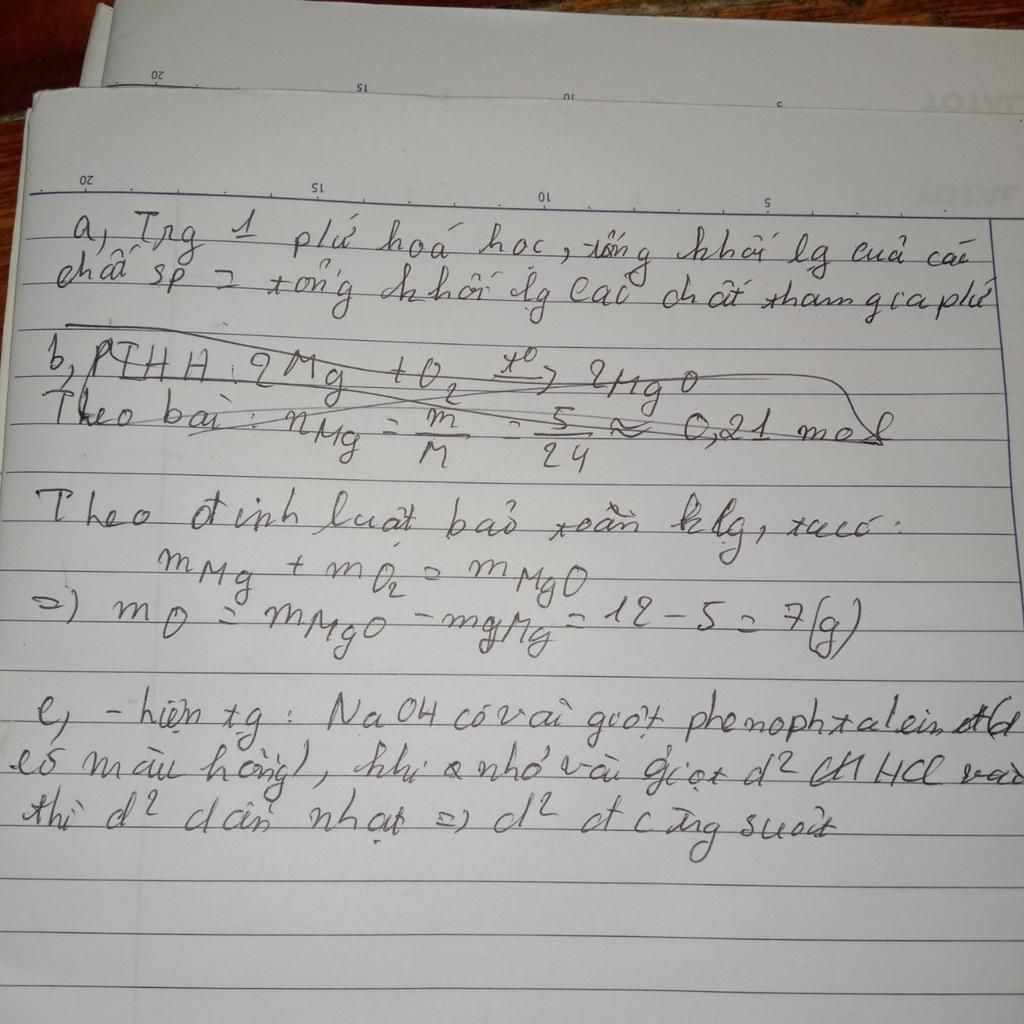 20 15 10 5
20 15 10 5
a, Trg 1 pứ hoá học, tổng khối lg của các
chất sp = tổng khối lg các chất tham gia pứ
b, PTHH: 2Mg + O2 t° → 2MgO
Theo bài: nMg = m/M = 5/24 ≈ 0,21 mol
Theo định luật bảo toàn klg, ta có:
mMg + mO2 = mMgO
=) mO = mMgO - mgMg = 12 - 5 = 7(g)
c, - hiện tg: NaOH có vài giọt phenophtalein (d
có màu hồng), khi nhỏ vài giọt d² HCl vào
thì d² dần nhạt =) d²